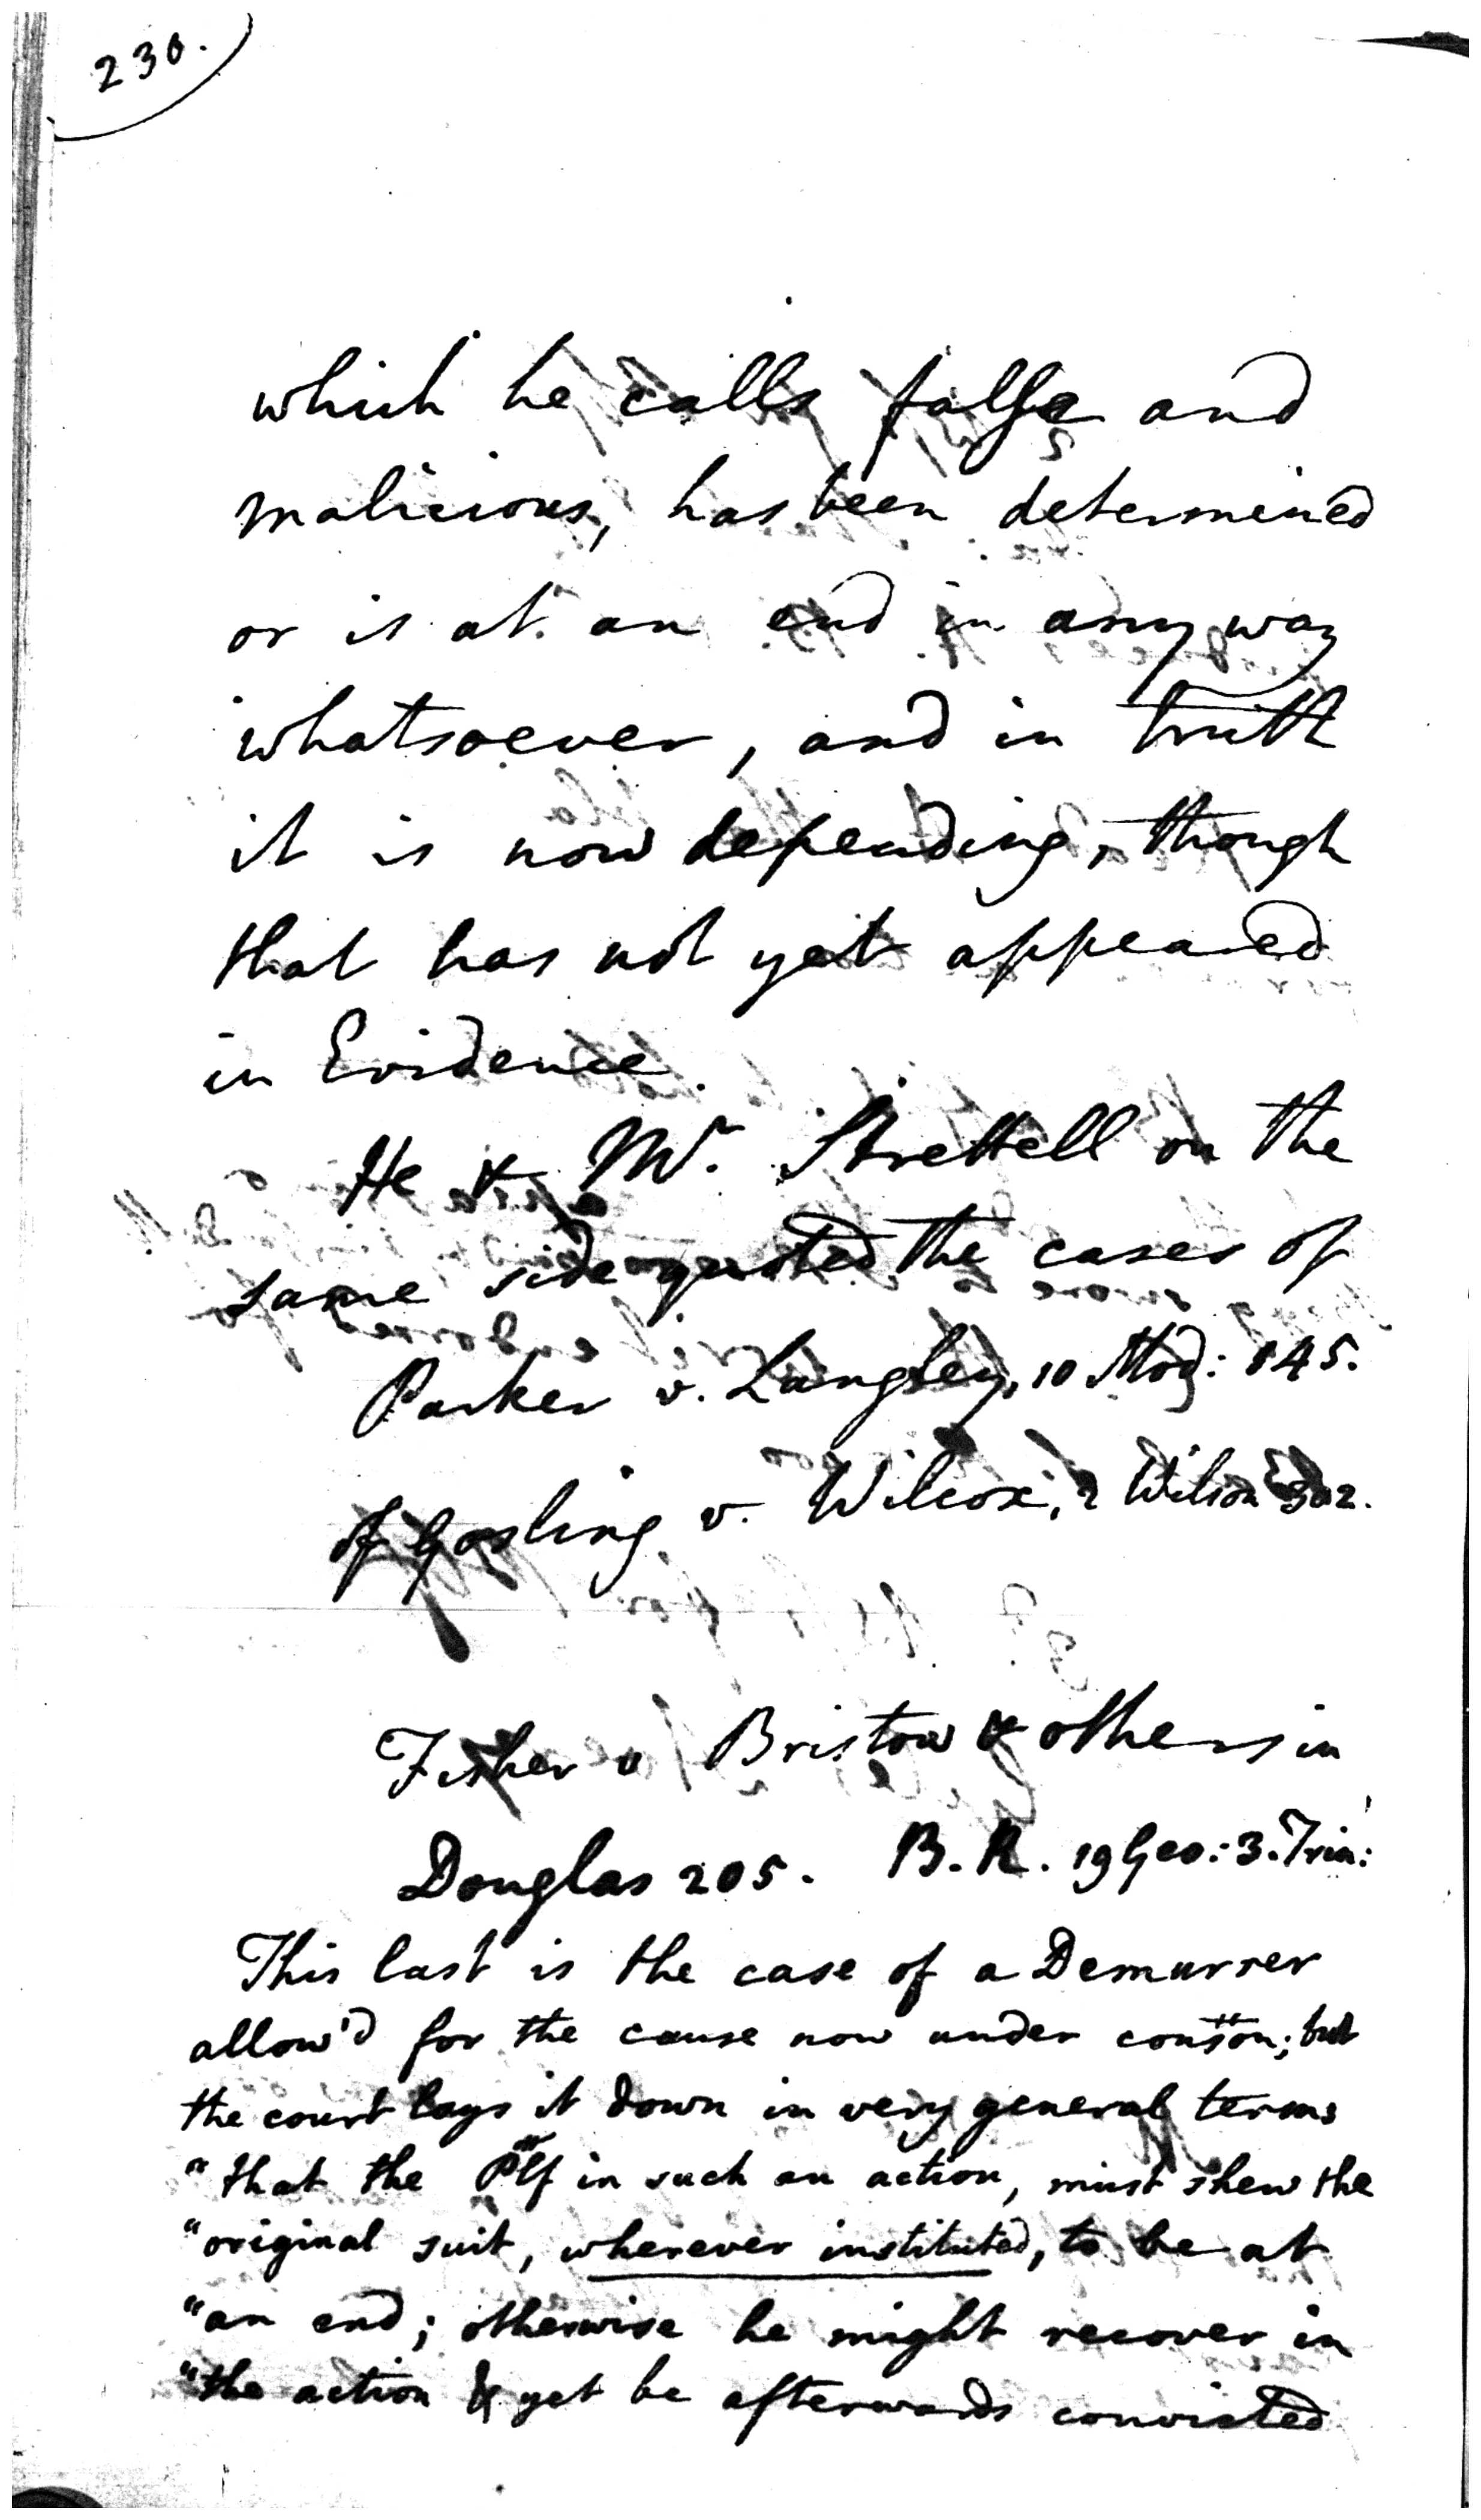 230.
which he calls false and
malicious, has been determined
or is at an end in any way
whatsoever, and in truth
it is now depending, though
that has not yet appeared
in Evidence.
He & Mr. Strettell on the
same side quoted the cases of
Parker v. Langley, 10 Mod: 145.
of Gosling v. Wilcox, 2 Wilson 302.
Fisher v Bristow & others in
Douglas 205. B. R. 19 Geo: 3. Trin:
This last is the case of a Demurrer
allow'd for the cause now under conson; but
the court lays it down in very general terms
"that the Plff in such an action, must shew the
"original suit, wherever instituted, to be at
"an end; otherwise he might recover in
"the action & yet be afterwards convicted